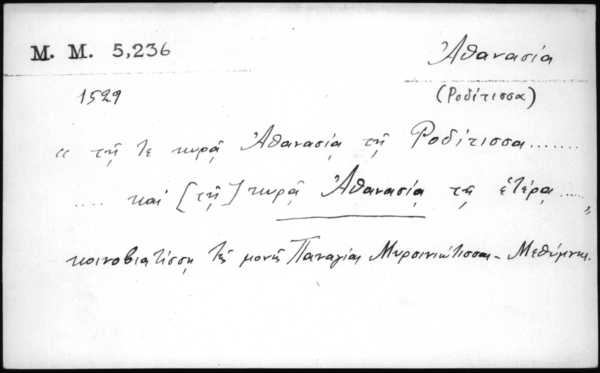 M. M. 5,236 Ἀθανασία
1529 (Ροδίτισσα)
« τῇ τε κυρᾷ Ἀθανασίᾳ τῇ Ροδίτισσα.......
.... καὶ [τῇ] κυρᾷ Ἀθανασίᾳ τῇ ἑτέρᾳ..... »
κοινοβιατίσσῃ τῆς μονῆς Παναγίας Μυρσινιώτισσας - Μεθύμνης.